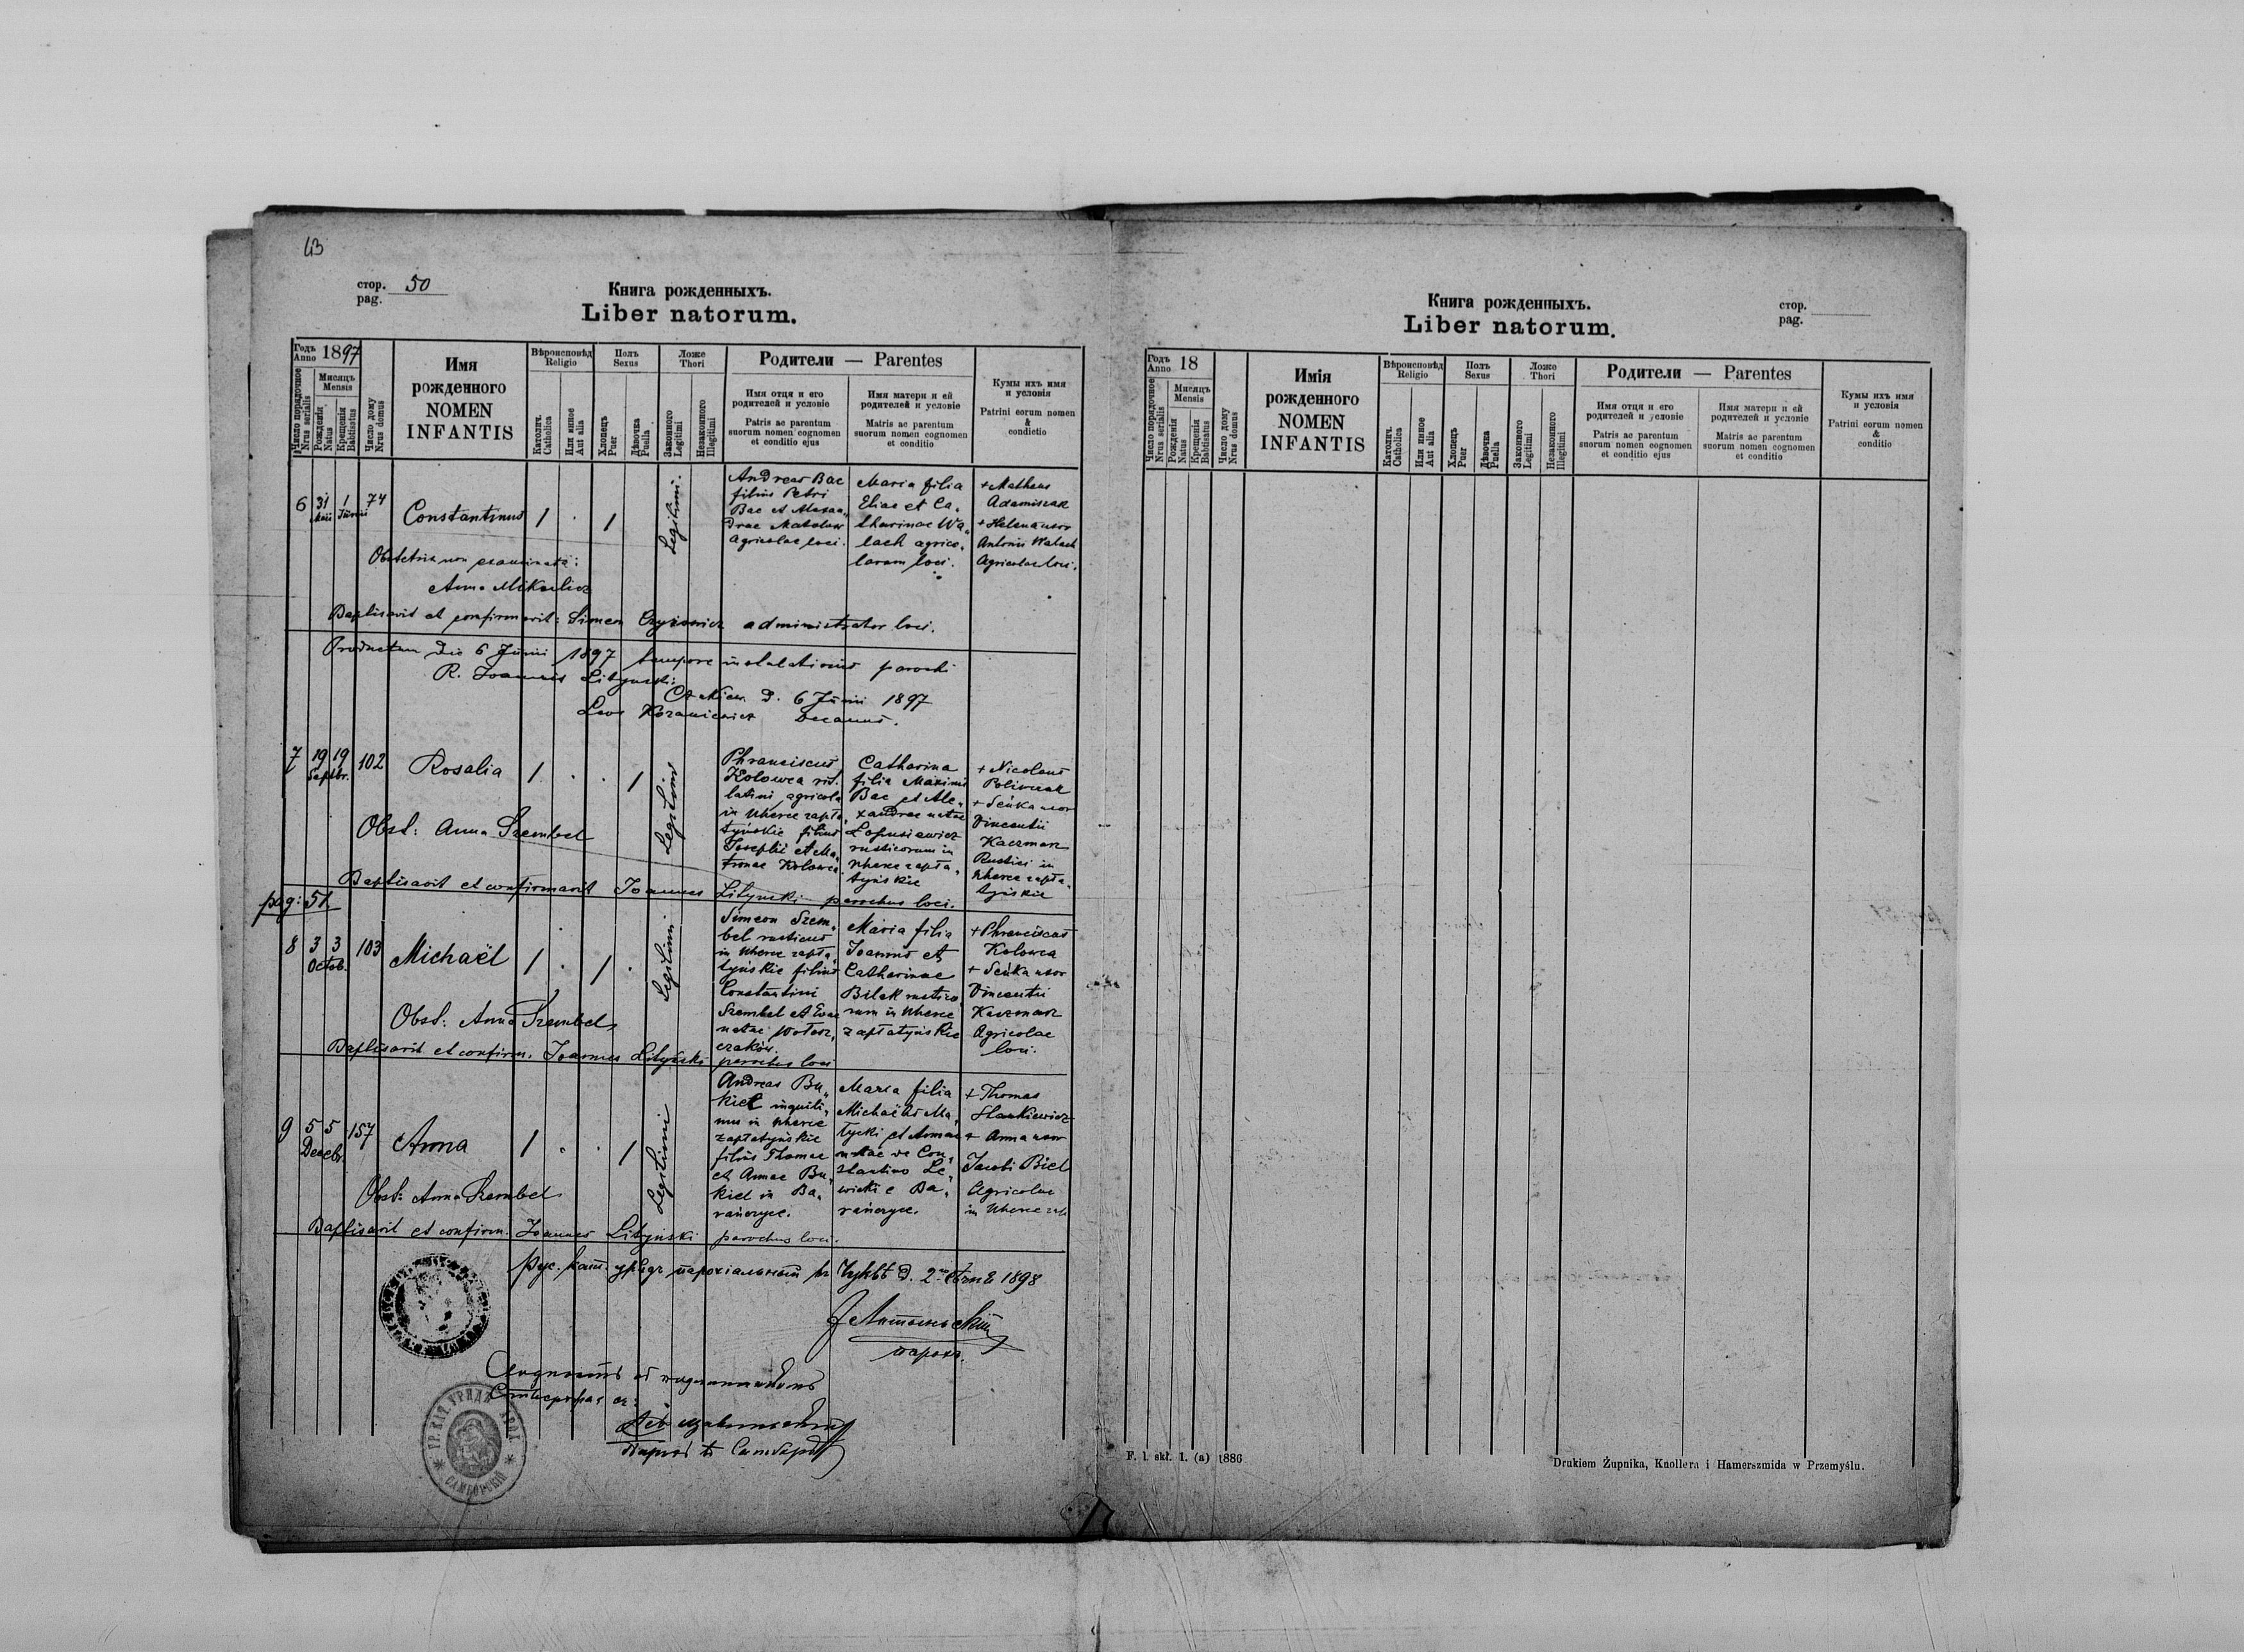 43
стор. 50
pag.
Книга рожденныхъ.
Liber natorum.
Годъ 1897
Anno
Мисяцъ
Mensis
Число порядочное
Nrus serialis
Рожденія
Natus
Крещенія
Babtisatus
Число дому
Nrus domus
Имя
рожденного
NOMEN
INFANTIS
Вѣроисповѣд
Religio
Католич.
Catholica
Или инное
Aut alia
Полъ
Sexus
Хлопецъ
Puer
Дѣвочка
Puella
Ложе
Thori
Законного
Legitimi
Незаконного
Illegitimi
Родители — Parentes
Имя отця и его
родителей и условіе
Patris ac parentum
suorum nomen cognomen
et conditio ejus
Имя матери и ей
родителей и условіе
Matris ac parentum
suorum nomen cognomen
et conditio
Кумы ихъ имя
и условія
Patrini eorum nomen
&
condictio
6 31 1 74
Maii Junii
Constantinus 1 . 1
Legitimi.
Andreas Bac
filius Petri
Bac et Alexan„
drae
agricolae loci.
Maria filia
Eliae et Ca„
tharinae Wa„
lach agrico„
larum loci.
+ Matheus
Adamiszak
+ Helena uxor
Antonii Walach
Agricolae loci.
Obstetrix non examinata:
Anna
Baptisavit et confirmavit: Simeon Czyżowicz administrator loci.
Productum die 6 Junii 1897 tempore installationis parochi
R. Joannis Lityński:
d. 6 Junii 1897
Decanus.
7 19 19 102
Septbr.
Rosalia 1 . . 1
Legitimi
Phranciscus
Kolowca rit.
latini agricola
in Wherce zapła„
tyńskie filius
Josephi et Ma„
tronae Kolowca
Catharina
filia Maximi
Bac et Ale„
xandrae natae
Łopusiewicz
rusticorum in
Wherce zapła„
tyńskie
+ Nicolaus
Poliwczak
+ Seńka uxor
Vincentii
Kaczmarz
Rustici in
Wherce zapła„
tyńskie
Obst: Anna Szembel
Baptisavit et confirmavit Joannes Lityński parochus loci.
pag: 51.
8 3 3 103
Octob.
Michaël 1 . 1 .
Legitimi
Simeon Szem„
bel rusticus
in Wherce zapła„
tyńskie filius
Constantini
Szembel et Evae
natae
Maria filia
Joannis et
Catharinae
Bilak rustico„
rum in Wherce
zapłatyńskie
+ Phranciscus
Kolowca
+ Seńka uxor
Vincentii
Kaczmarz
Agricolae
loci.
Obst: Anna Szembel
Baptisavit et confirm. Joannes Lityński parochus loci
9 5 5 157
Decebr.
Anna 1 . . 1
Legitimi
Andreas Bu„
kiel inquili„
nus in Wherce
zapłatyńskie
filius Thomae
et Annae Bu„
kiel in Ba„
rańczyce.
Maria filia
Michaëlis Ma„
łycki et Annae
natae de Con„
stantino Le„
wicki e Ba„
rańczyce.
+ Thomas
Stankiewicz
+ Anna uxor
Jacobi Biel
Agricolae
in Wherce zap.
Obst: Anna Szembel
Baptisavit et confirm. Joannes Lityński parochus loci.
Рус. кат. урядъ парохіальный въ 1898
парохъ.
ГР. КАТ. УРЯДЪ
САМБОРСКІЙ
Книга рожденныхъ.
Liber natorum.
стор.
pag.
Годъ 18
Anno
Мисяцъ
Mensis
Число порядочное
Nrus serialis
Рожденія
Natus
Крещенія
Babtisatus
Число дому
Nrus domus
Имія
рожденного
NOMEN
INFANTIS
Вѣроисповѣд
Religio
Католич.
Catholica
Или инное
Aut alia
Полъ
Sexus
Хлопецъ
Puer
Дѣвочка
Puella
Ложе
Thori
Законного
Legitimi
Незаконного
Illegitimi
Родители — Parentes
Имя отця и его
родителей и условіе
Patris ac parentum
suorum nomen cognomen
et conditio ejus
Имя матери и ей
родителей и условіе
Matris ac parentum
suorum nomen cognomen
et conditio
Кумы ихъ имя
и условія
Patrini eorum nomen
&
conditio
F. l. skł. 1. (a) 1886
Drukiem Żupnika, Knollera i Hamerszmida w Przemyślu.